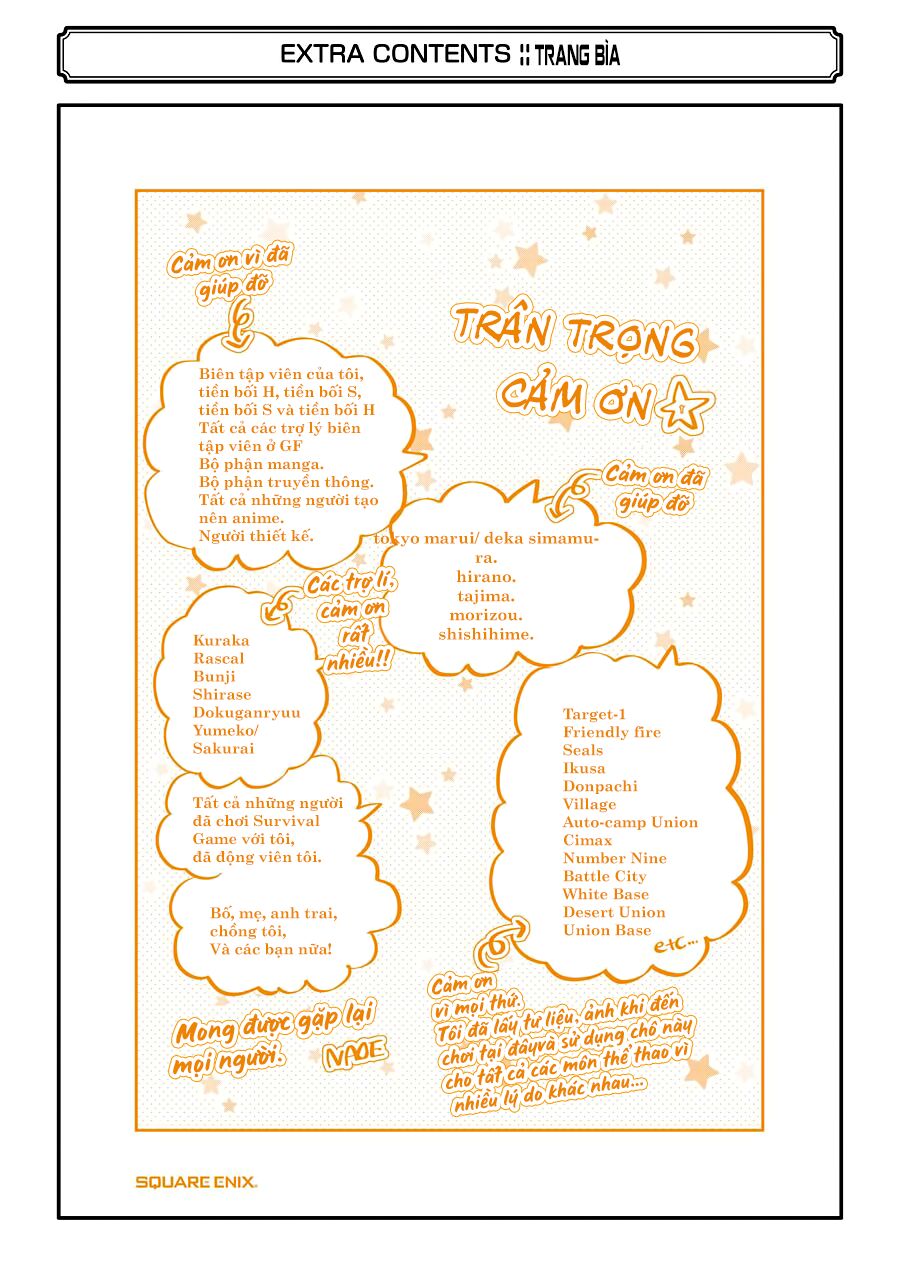 EXTRA CONTENTS :: TRANG BÌA
TRÂN TRỌNG
CẢM ƠN
Cảm ơn vì đã
giúp đỡ
Biên tập viên của tôi,
tiền bối H, tiền bối S,
tiền bối S và tiền bối H
Tất cả các trợ lý biên
tập viên ở GF
Bộ phận manga.
Bộ phận truyền thông.
Tất cả những người tạo
nên anime.
Người thiết kế.
Cảm ơn đã
giúp đỡ
tokyo marui/ deka simamu-
ra.
hirano.
tajima.
morizou.
shishihime.
Các trợ lí,
cảm ơn
rất
nhiều!!
Kuraka
Rascal
Bunji
Shirase
Dokuganryuu
Yumeko/
Sakurai
Tất cả những người
đã chơi Survival
Game với tôi,
đã động viên tôi.
Bố, mẹ, anh trai,
chồng tôi,
Và các bạn nữa!
Target-1
Friendly fire
Seals
Ikusa
Donpachi
Village
Auto-camp Union
Cimax
Number Nine
Battle City
White Base
Desert Union
Union Base
etc...
Cảm ơn
vì mọi thứ.
Tôi đã lấy tư liệu, ảnh khi đến
chơi tại đâyvà sử dụng chỗ này
cho tất cả các môn thể thao vì
nhiều lý do khác nhau...
Mong được gặp lại
mọi người.
NAOE
SQUARE ENIX.